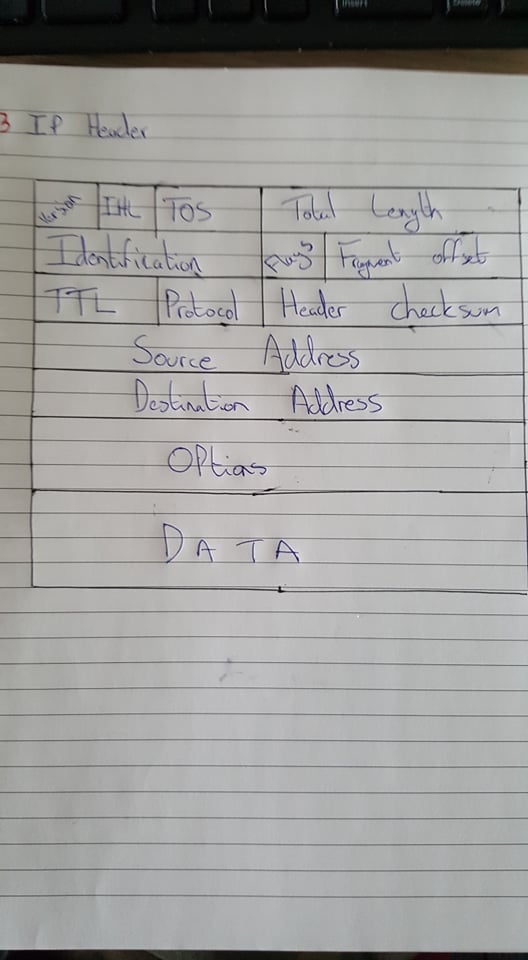 3 IP Header
Version IHL TOS Total Length
Identification Flags Fragment offset
TTL Protocol Header checksum
Source Address
Destination Address
Options
DATA